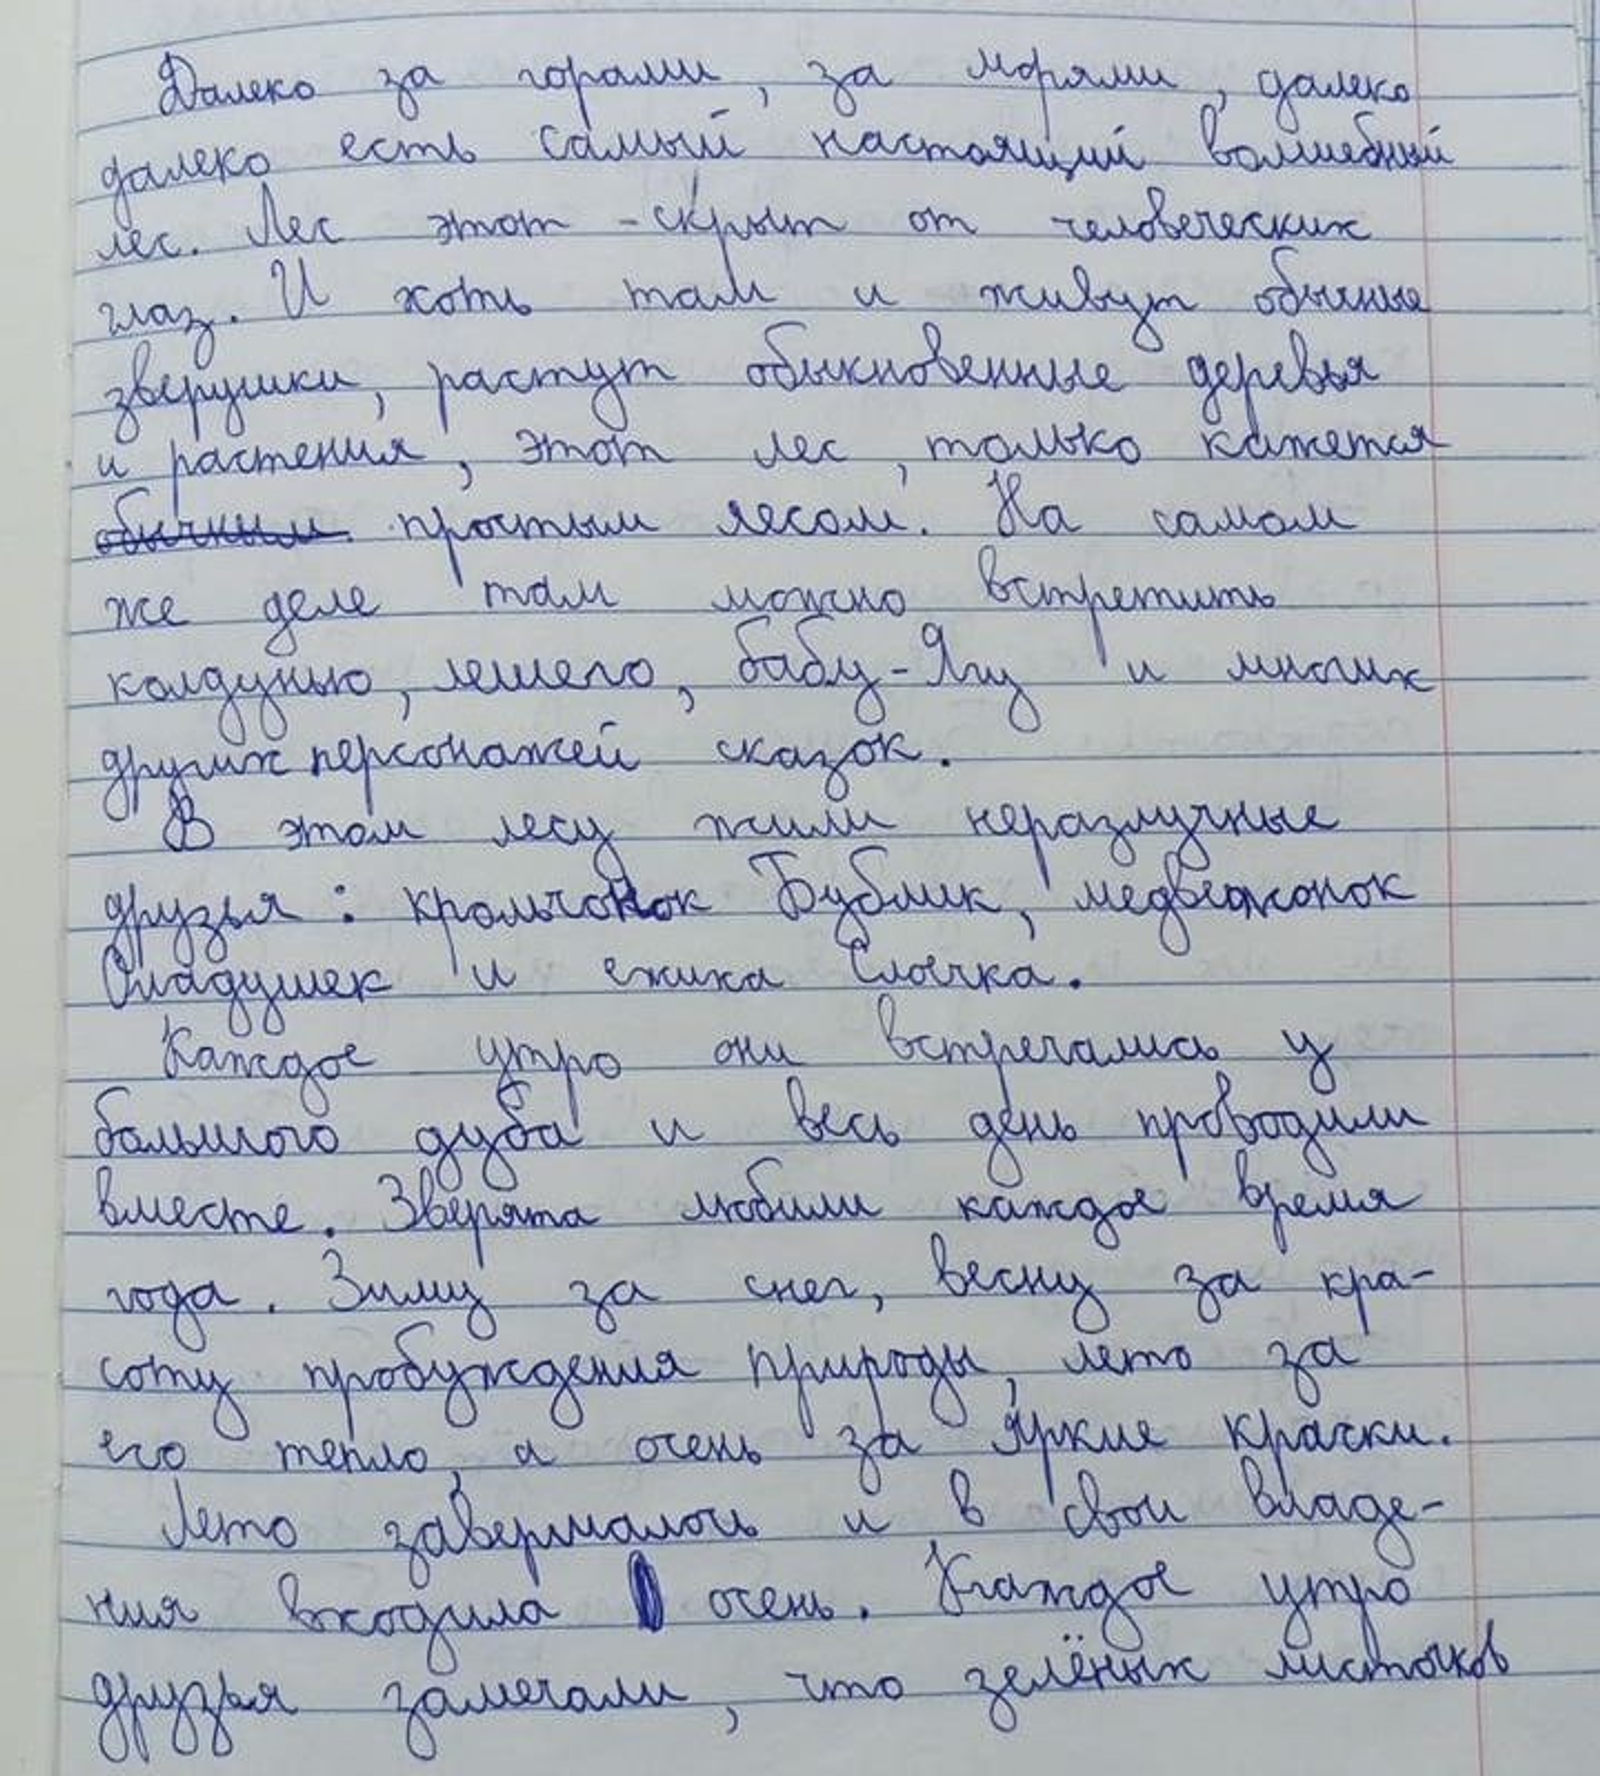 Далеко за горами, за морями, далеко
далеко есть самый настоящий волшебный
лес. Лес этот - скрыт от человеческих
глаз. И хоть там и живут обычные
зверушки, растут обыкновенные деревья
и растения, этот лес, только кажется
обычным простым лесом. На самом
же деле там можно встретить
колдунью, лешего, бабу-Ягу и многих
других персонажей сказок.
В этом лесу жили неразлучные
друзья: крольчонок Бублик, медвежонок
Оладушек и ежика Ёлочка.
Каждое утро они встречались у
большого дуба и весь день проводили
вместе. Зверята любили каждое время
года. Зиму за снег, весну за кра-
соту пробуждения природы, лето за
его тепло, а осень за яркие краски.
Лето завершалось и в свои владе-
ния входила осень. Каждое утро
друзья замечали, что зелёных листочков